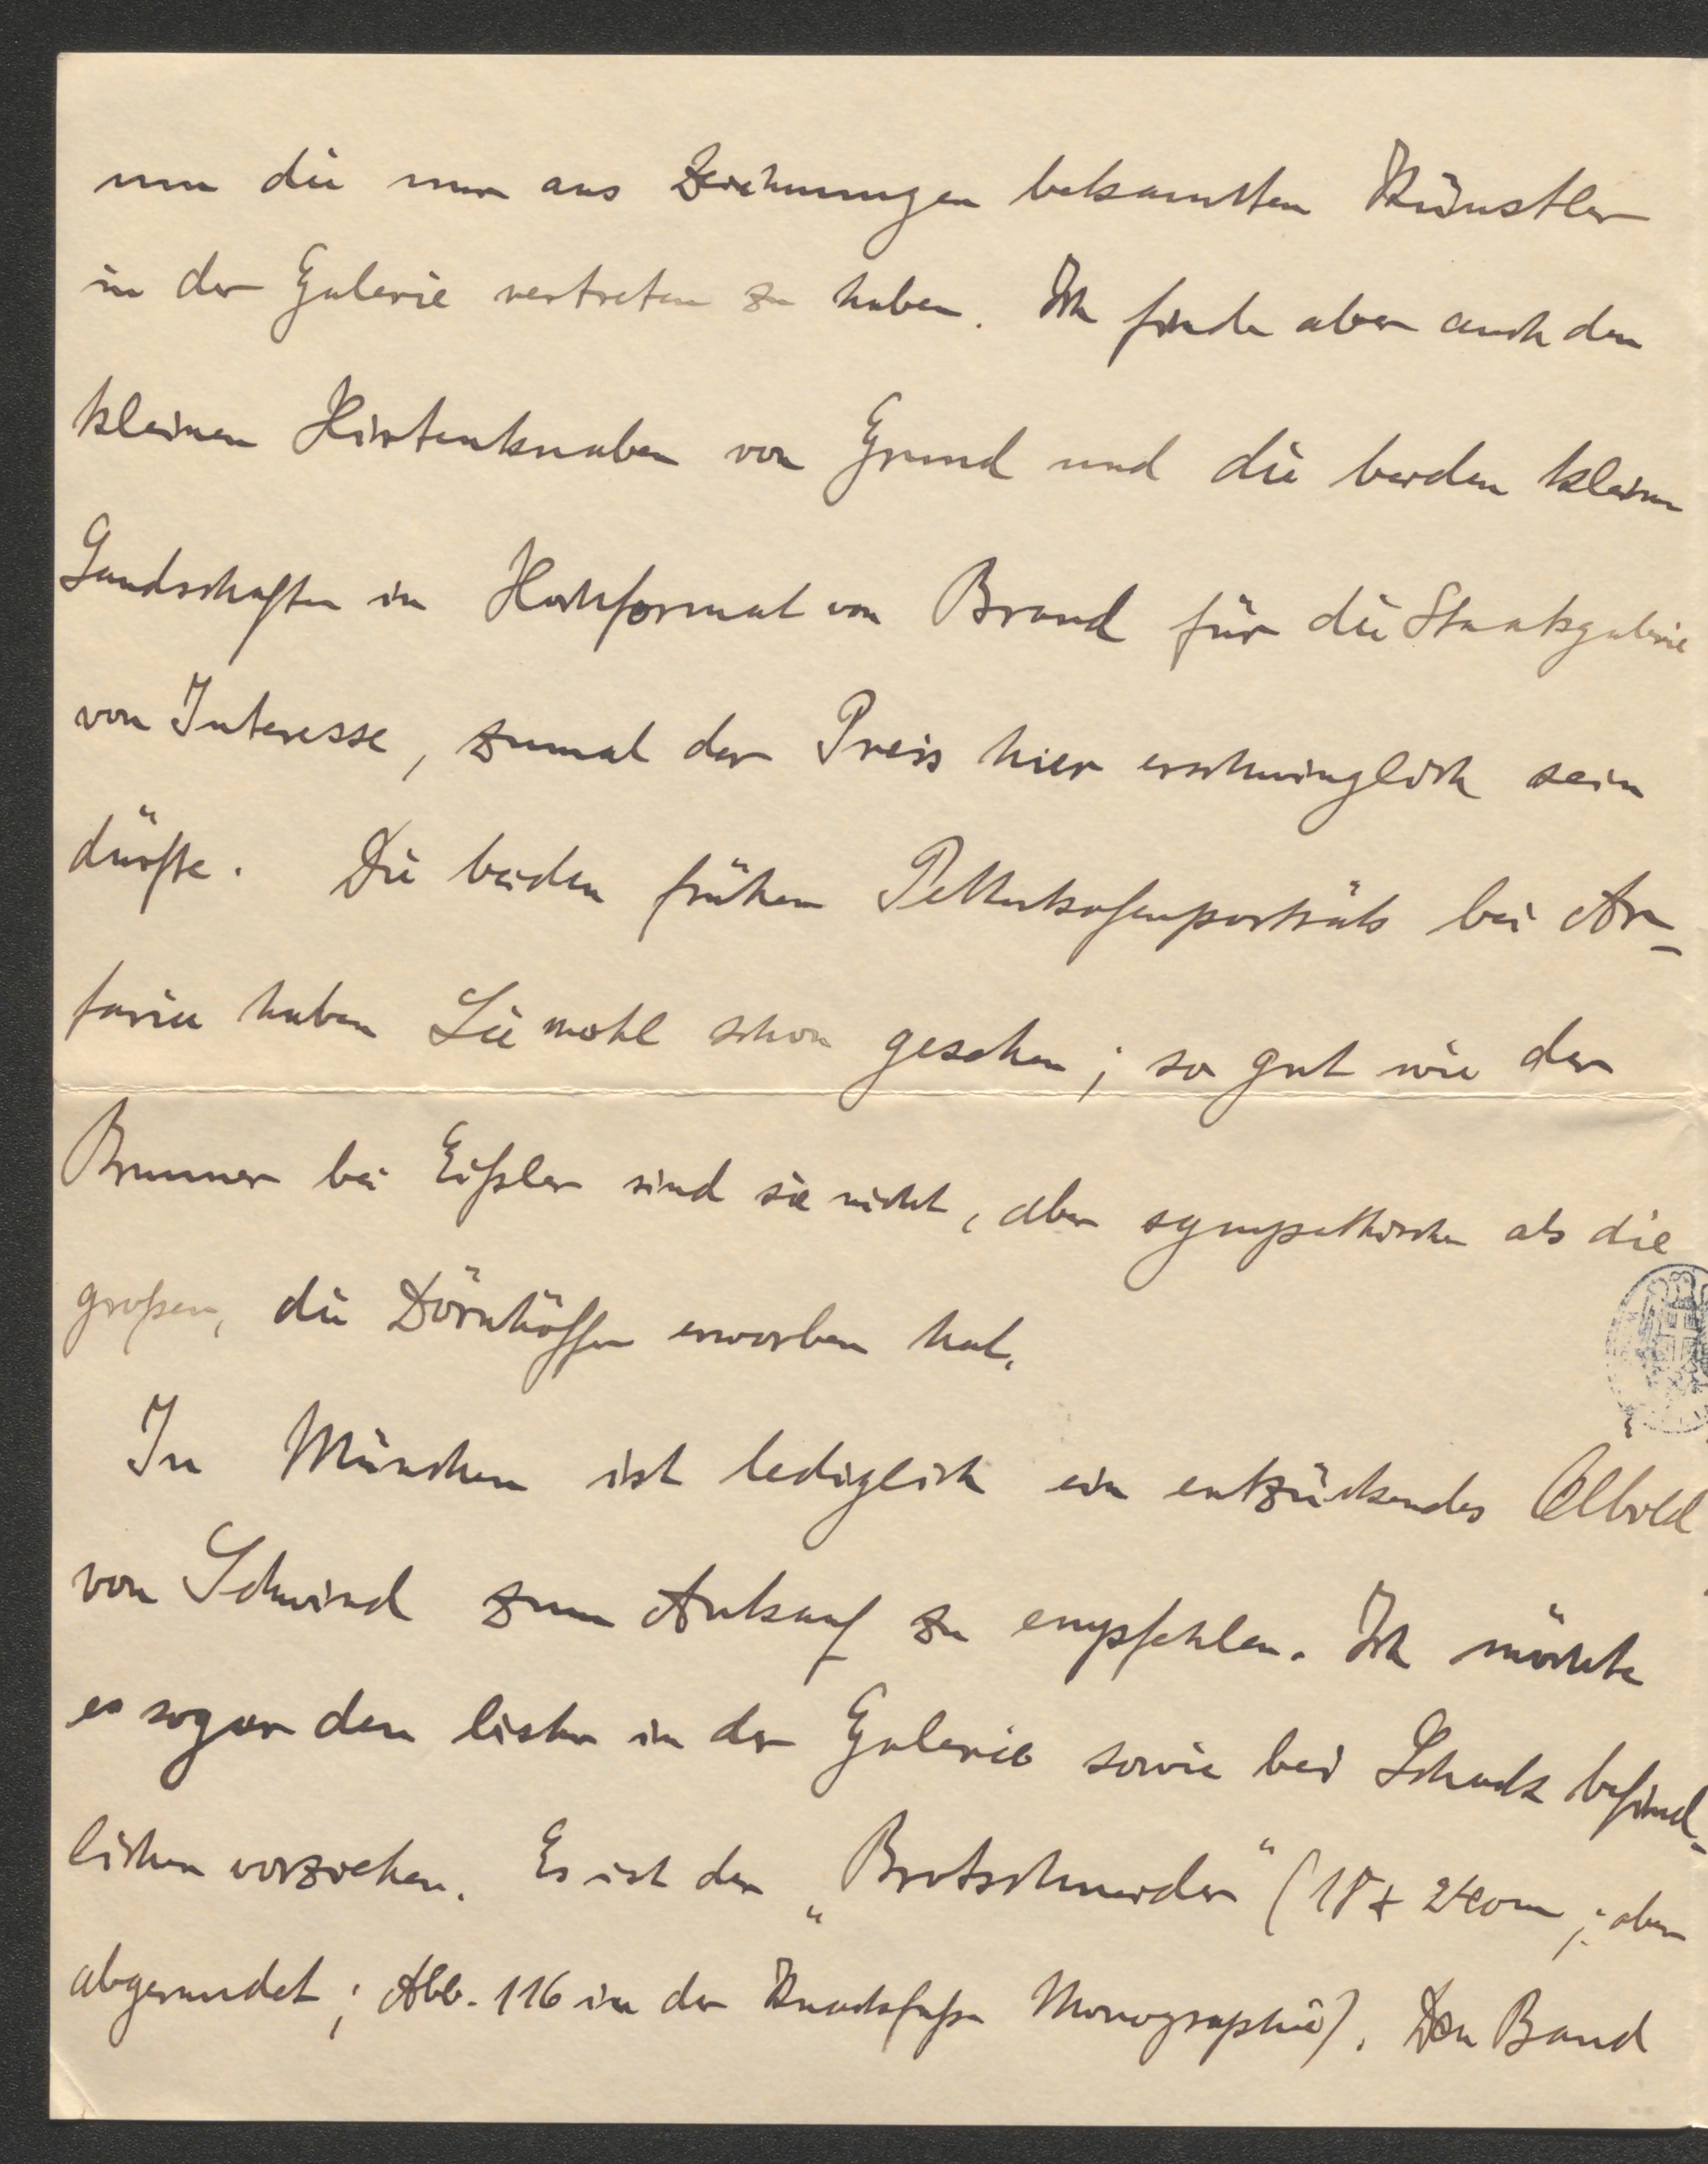 um die nur aus Zeichnungen bekannten Künstler
in der Galerie vertreten zu haben. Ich finde aber auch den
kleinen Hirtenknaben von Grund und die beiden kleinen
Landschaften im Hochformat von Brand für die Staatsgalerie
von Interesse, zumal der Preis hier erschwinglich sein
dürfte. Die beiden frühen Pettenkofenporträts bei Ar-
taria haben Sie wohl schon gesehen; so gut wie der
Brunner bei Eißler sind sie nicht, aber sympathischer als die
großen, die Dörnhöffer erworben hat.
In München ist lediglich ein entzückendes Ölbild
von Schwind zum Ankauf zu empfehlen. Ich möchte
es sogar den in der Galerie sowie bei Schack befind-
lichen vorziehen. Es ist der „Brotschneider" (18 x cm; oben
abgerundet; Abb. 116 in der Knackfuß Monographie). Den Band